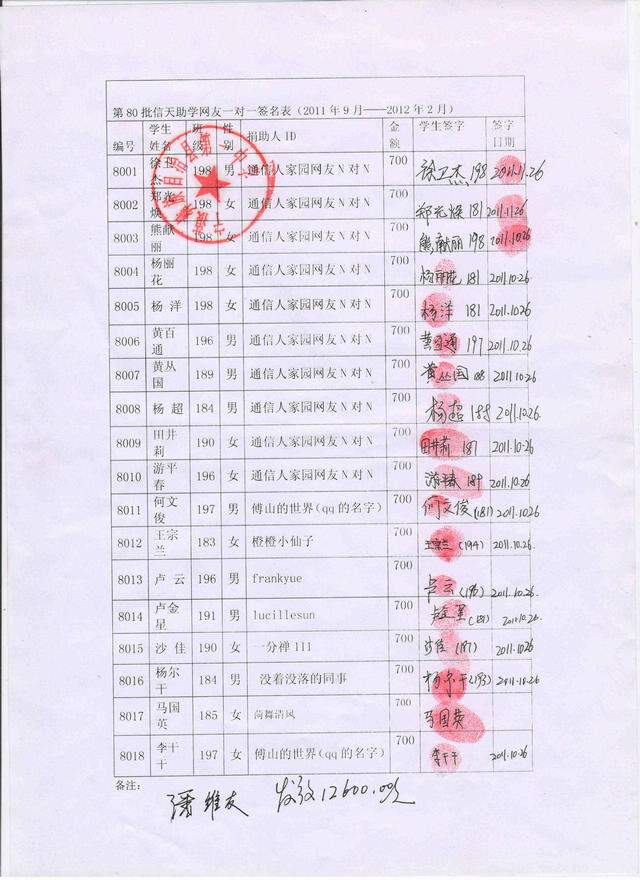 第80批信天助学网友一对一签名表（2011年9月——2012年2月）
编号 学生姓名 班级 性别 捐助人ID 金额 学生签字 签字日期
8001 徐卫杰 198 男 通信人家园网友N对N 700 徐卫杰 198 2011.11.26
8002 郑光焕 198 女 通信人家园网友N对N 700 郑光焕 181 2011.11.26
8003 熊献丽 198 女 通信人家园网友N对N 700 熊献丽 198 2011.10.26
8004 杨丽花 198 女 通信人家园网友N对N 700 杨丽花 181 2011.10.26
8005 杨 洋 198 女 通信人家园网友N对N 700 杨洋 181 2011.10.26
8006 黄百通 196 男 通信人家园网友N对N 700 黄百通 197 2011.10.26
8007 黄丛国 189 男 通信人家园网友N对N 700 黄丛国 2011.10.26
8008 杨 超 184 男 通信人家园网友N对N 700 杨超 2011.10.26
8009 田井莉 190 女 通信人家园网友N对N 700 田井莉 187 2011.10.26
8010 游平春 196 女 通信人家园网友N对N 700 189 2011.10.26
8011 何文俊 197 男 傅山的世界(qq的名字) 700 何文俊(181) 2011.10.26
8012 王宗兰 183 女 橙橙小仙子 700 王宗兰(194) 2011.10.26.
8013 卢 云 196 男 frankyue 700 卢云(195) 2011.10.26.
8014 卢金星 191 男 lucillesun 700 卢金星(181) 2011.10.26
8015 沙 佳 190 女 一分禅111 700 沙佳(197) 2011.10.26
8016 杨尔干 184 男 没着没落的同事 700 杨尔干(193) 2011.10.26
8017 马国英 185 女 荷舞清风 700 马国英
8018 李干干 197 女 傅山的世界(qq的名字) 700 李干干 2011.10.26
备注：
潘维友 发放12600.00元